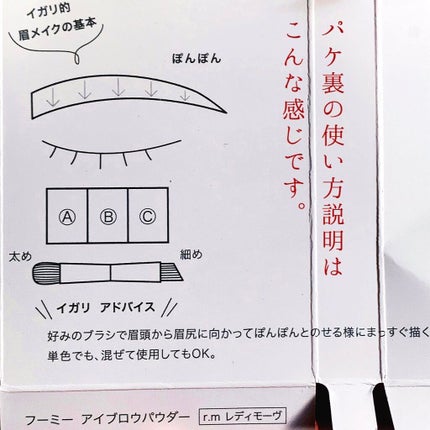 イガリ的
眉メイクの基本
ぽんぽん
パケ裏の使い方説明は
こんな感じです。
Ⓐ Ⓑ Ⓒ
太め
細め
イガリ アドバイス
好みのブラシで眉頭から眉尻に向かってぽんぽんとのせる様にまっすぐ描く
単色でも、混ぜて使用してもOK。
フーミー アイブロウパウダー r.m レディモーヴ